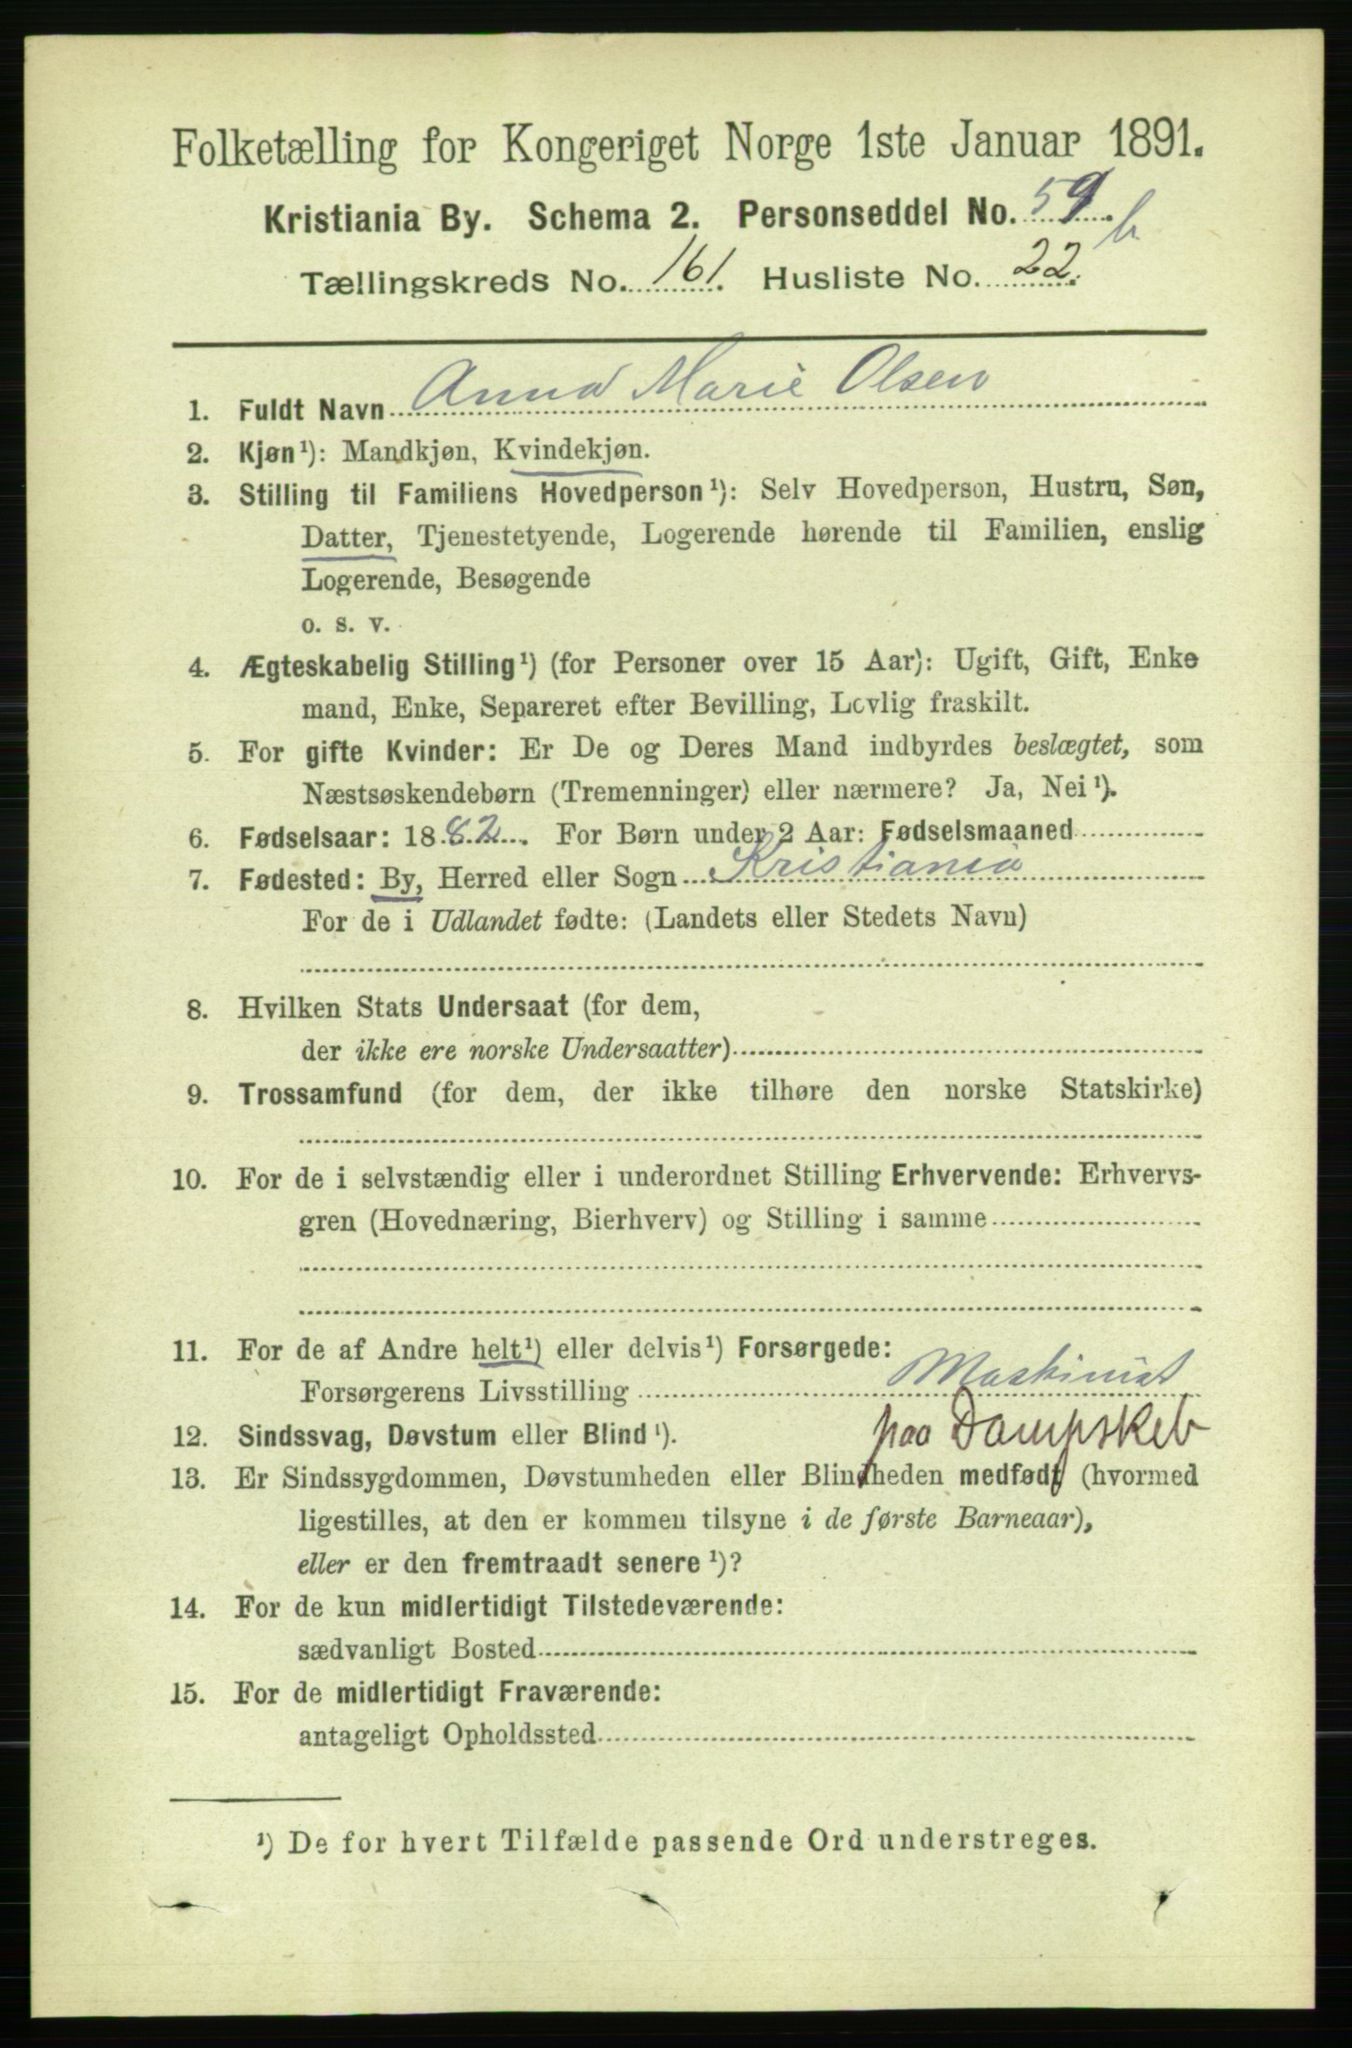 Folketælling for Kongeriget Norge 1ste Januar 1891.
Kristiania By. Schema 2. Personseddel No. 59 b
Tællingskreds No. 161. Husliste No. 22.
1. Fuldt Navn Anna Marie Olsen
2. Kjøn¹): Mandkjøn, Kvindekjøn.
3. Stilling til Familiens Hovedperson¹): Selv Hovedperson, Hustru, Søn,
Datter, Tjenestetyende, Logerende hørende til Familien, enslig
Logerende, Besøgende
o. s. v.
4. Ægteskabelig Stilling¹) (for Personer over 15 Aar): Ugift, Gift, Enke
mand, Enke, Separeret efter Bevilling, Lovlig fraskilt.
5. For gifte Kvinder: Er De og Deres Mand indbyrdes beslægtet, som
Næstsøskendebørn (Tremenninger) eller nærmere? Ja, Nei¹).
6. Fødselsaar: 1882. For Børn under 2 Aar: Fødselsmaaned
7. Fødested: By, Herred eller Sogn Kristiania
For de i Udlandet fødte: (Landets eller Stedets Navn)
8. Hvilken Stats Undersaat (for dem,
der ikke ere norske Undersaatter)
9. Trossamfund (for dem, der ikke tilhøre den norske Statskirke)
10. For de i selvstændig eller i underordnet Stilling Erhvervende: Erhvervs-
gren (Hovednæring, Bierhverv) og Stilling i samme
11. For de af Andre helt¹) eller delvis¹) Forsørgede:
Forsørgerens Livsstilling Maskinist
paa Dampskib
12. Sindssvag, Døvstum eller Blind¹).
13. Er Sindssygdommen, Døvstumheden eller Blindheden medfødt (hvormed
ligestilles, at den er kommen tilsyne i de første Barneaar),
eller er den fremtraadt senere¹)?
14. For de kun midlertidigt Tilstedeværende:
sædvanligt Bosted
15. For de midlertidigt Fraværende:
antageligt Opholdssted
¹) De for hvert Tilfælde passende Ord understreges.